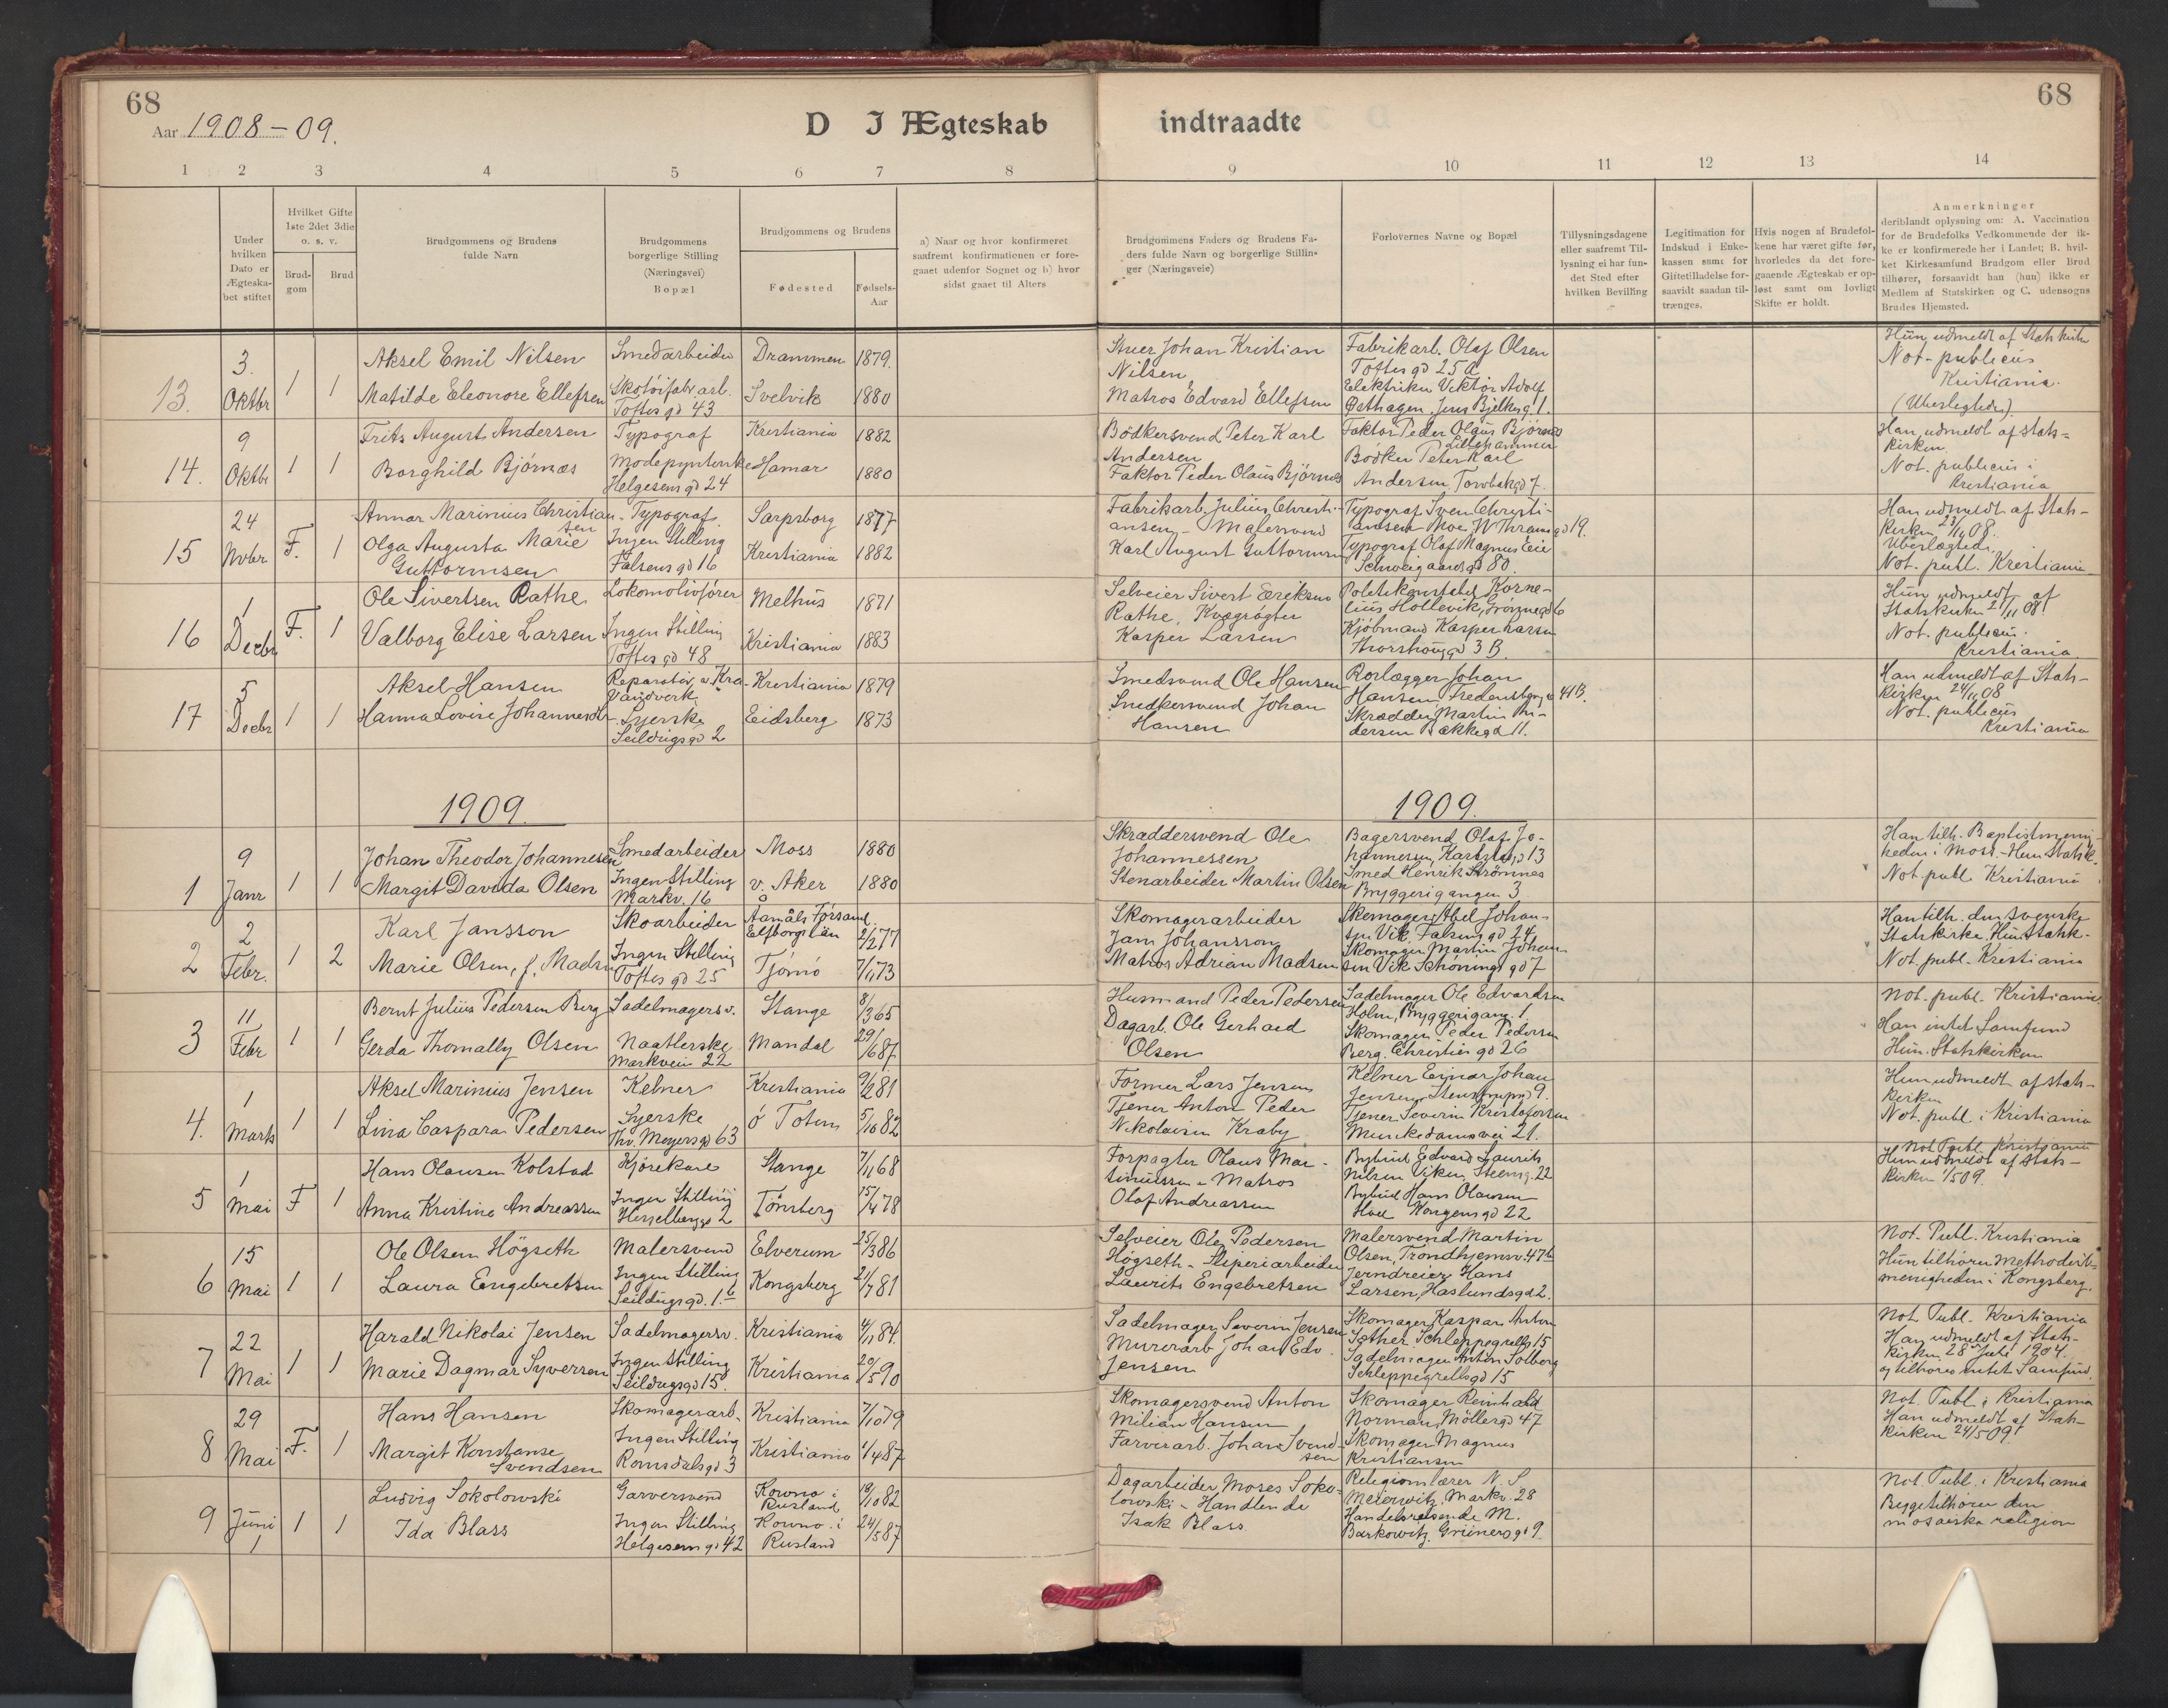 68
Aar 1908-09.
D I Ægteskab
indtraadte
68
1 2 3 4 5 6 7 8 9 10 11 12 13 14
Under hvilken Dato er Ægteskabet stiftet
Hvilket Gifte 1ste 2det 3die o. s. v.
Brudgom
Brud
Brudgommens og Brudens fulde Navn
Brudgommens borgerlige Stilling (Næringsvei) Bopæl
Brudgommens og Brudens
Fødested
Fødsels-Aar
a) Naar og hvor konfirmeret saafremt konfirmationen er foregaaet udenfor Sognet og b) hvor sidst gaaet til Alters
Brudgommens Faders og Brudens Faders fulde Navn og borgerlige Stillinger (Næringsveie)
Forlovernes Navne og Bopæl
Tillysningsdagene eller saafremt Tillysning ei har fundet Sted efter hvilken Bevilling
Legitimation for Indskud i Enkekassen samt for Giftetilladelse forsaavidt saadan tiltrænges.
Hvis nogen af Brudefolkene har været gifte før, hvorledes da det foregaaende Ægteskab er opløst samt om lovligt Skifte er holdt.
Anmerkninger
deriblandt oplysning om: A. Vaccination for de Brudefolks Vedkommende der ikke er konfirmerede her i Landet; B. hvilket Kirkesamfund Brudgom eller Brud tilhører, forsaavidt han (hun) ikke er Medlem af Statskirken og C. udensogns Brudes Hjemsted.
13. 3. Oktbr 1 1
Aksel Emil Nilsen Smedarbeider Drammen 1879.
Matilde Eleonore Ellefsen Skotøifabr. arb. Toftes gd 43 Svelvik 1880
Stuer Johan Kristian Nilsen
Matros Edvard Ellefsen
Fabrikarb. Olaf Olsen Toftes gd 25a
Elektriker Viktor Adolf Østhagen, Jens Bjelkesg 1.
Hun udmeldt af Statskirken
Not. publicus
Kristiania.
(Ubeslegtede).
14. 9 Oktbr 1 1
Frits August Andersen Typograf Kristiania 1882
Borghild Bjørnæs Modepynterske Helgesens gd 24 Hamar 1880
Bødkersvend Peter Karl Andersen
Faktor Peder Olaus Bjørnæs
Faktor Peder Olaus Bjørnæs Lillehammer
Bødker Peter Karl Andersen, Torvbakgd 7.
Han udmeldt af Statskirken
Not. publicus i
Kristiania
15 24 Novbr F. 1
Annar Marinius Christiansen Typograf Sarpsborg 1877
Olga Augusta Marie Guttormsen Ingen Stilling Falsens gd 16 Kristiania 1882
Fabrikarb. Julius Christiansen - Malersvend
Karl August Guttormsen
Typograf Sven Christiansen Moe, W Thranesgd 19.
Typograf Olaf Magnus Eie Schweigaardsgd 80.
Han udmeldt af Statskirken 23/11 08.
Ubeslægtede.
Not. publ. Kristiania
16 1 Decbr F. 1
Ole Sivertsen Rathe Lokomotivfører Melhus 1871
Valborg Elise Larsen Ingen Stilling Toftes gd 48 Kristiania 1883
Selveier Sivert Eriksen Rathe, Kvægrøgter
Kasper Larsen
Politikonstabel Kornelius Hollevik,
Kjøbmand Kasper Larsen Thorshougd 3 B.
Hun udmeldt af Statskirken 27/11 08
Not. publicus.
Kristiania.
17 5 Decbr 1 1
Aksel Hansen Reparatør v. Kra Vandverk Kristiania 1879
Hanna Lovise Johannesdtr. Syerske Seildugsgd 2 Eidsberg 1873
Smedsvend Ole Hansen
Snedkersvend Johan Hansen
Rørlægger Johan Hansen, Fredensborg v 41B.
Skrædder Martin Andersen Bakkegd 11.
Han udmeldt af Statskirken 24/11 08
Not. publicus
Kristiania
1909.
1909.
1 9 Janr 1 1
Johan Theodor Johannesen Smedarbeider Moss 1880
Margit Davida Olsen Ingen Stilling Markv. 16 v. Aker 1880
Skræddersvend Ole Johannessen
Stenarbeider Martin Olsen
Bagersvend Olaf Johannessen, 13
Smed Henrik Strømnes Bryggerigangen 3
Han tilh. Baptistmenigheden i Moss - Hun Statsk.
Not. publ. Kristiania
2 2 Febr. 1 2
Karl Jansson Skoarbeider Åamåls Førsaml. Elfborgs län 2/2 77
Marie Olsen, f. Madsen Ingen Stilling Toftes gd 25 Tjømø 7/1 73
Skomagerarbeider Jan Johansson
Matros Adrian Madsen
Skomager Abel Johansen Vik, Falsens gd 24,
Skomager Martin Johansen Vik Schønings gd 7
Han tilh. den svenske Statskirke. Hun Statsk.
Not. publ. Kristiania
3 11 Febr 1 1
Bernt Julius Pedersen Berg Sadelmagersv. Stange 8/3 65
Gerda Thomally Olsen Naatlerske Markvein 22 Mandal 29/6 87
Husmand Peder Pedersen
Dagarb. Ole Gerhard Olsen
Sadelmager Ole Edvardsen Holm, Bryggerigang. 1
Skomager Peder Pedersen Berg. Christies gd 26
Not. publ. Kristiania
Han intet Samfund
Hun. Statskirken
4. 1 Marts 1 1
Aksel Marinius Jensen Kelner Kristiania 9/2 81
Lina Caspara Pedersen Syerske Thv. Meyersgd 63 ø Toten 5/10 82
Former Lars Jensen
Tjener Anton Peder Nikolaisen Kraby
Kelner Einar Johan Jensen, Stenstrupsgd 9.
Tjener Severin Kristofersen Munkedamsvei 21.
Hun udmeldt af Statskirken
Not. publ. i Kristiania
5 1 Mai F 1
Hans Olausen Kolstad Kjørekarl Stange 7/11 68
Anna Kristine Andreassen Ingen Stilling Hesselbergsgd 2 Tønsberg 15/4 78
Forpagter Olaus Martinussen - Matros
Olaf Andreassen
Bybud Edvard Laurits Nilsen Viken, Steensg. 22
Bybud Hans Olausen Hoel Kongensgd 22
Not Publ. Kristiania
Hun udmeldt af Statskirken 1/5 09.
6 15 Mai 1 1
Ole Olsen Høgseth Malersvend Elverum 25/3 86
Laura Engebretsen Ingen Stilling Seildugsgd. 1 b Kongsberg 21/7 81
Selveier Ole Pedersen Høgseth - Sliperiarbeider
Laurits Engebretsen
Malersvend Martin Olsen, Trondhjemsv. 47 b
Jerndreier Hans Larsen, Haslundsgd 2.
Not. Publ. Kristiania
Hun tilhører Methodistmenigheden i Kongsberg.
7 22 Mai 1 1
Harald Nikolai Jensen Sadelmagersv. Kristiania 4/11 84.
Marie Dagmar Syversen Ingen Stilling Seildugsgd 15. Kristiania 20/5 90
Sadelmager Severin Jensen
Murerarb Johan Edv. Jensen
Skomager Kaspar Anton Sæther Schleppegrellsg 15
Sadelmager Anton Solberg Schleppegrellsgd 15
Not. Publ. Kristiania
Han udmeldt af Statskirken 28 Juli 1904.
og tilhører intet Samfund.
8 29 Mai F. 1
Hans Hansen Skomagerarb. Kristiania 7/10 79
Margit Konstanse Svendsen Ingen Stilling Romsdalsgd 3 Kristiania 1/4 87
Skomagersvend Anton Milian Hansen
Farverarb. Johan Svendsen
Skomager Reinhald Norman, Møllergd 47
Skomager Magnus Kristiansen
Not. Publ. i Kristiania
Han udmeldt af Statskirken 24/5 09.
9 Juni 1 1 1
Ludvig Sokolowski Garversvend Kowno i Rusland 18/10 82
Ida Blass Ingen Stilling Helgesens gd 42 Kowno i Rusland 24/5 87
Dagarbeider Moses Sokolowski - Handlende
Isak Blass
Religionslærer N. S. Meierwitz, Markv. 28
Handelsreisende M. Barkowitz, Grünersgd 9.
Not. Publ. i Kristiania
Begge tilhører den mosaiske religion